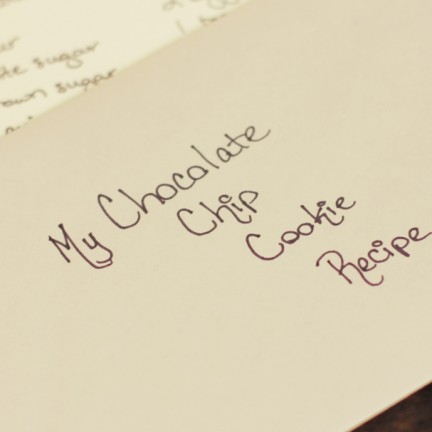 sugar
own sugar
My Chocolate
Chip
Cookie
Recipe